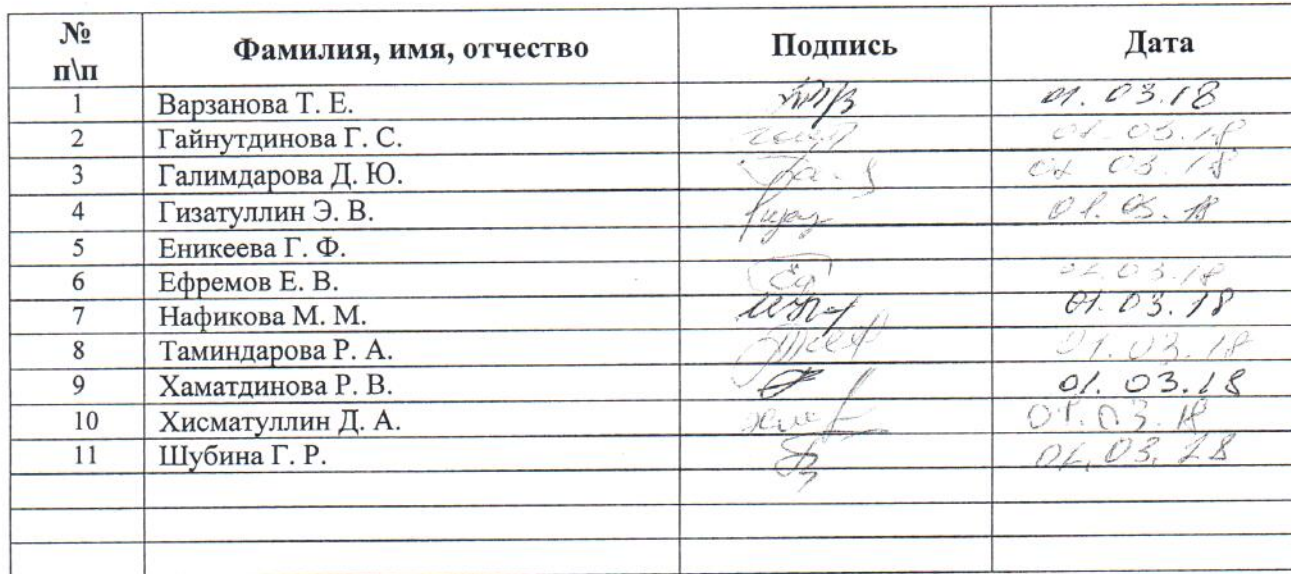 № п\п Фамилия, имя, отчество Подпись Дата
1 Варзанова Т. Е. 01.03.18
2 Гайнутдинова Г. С. 01.03.18
3 Галимдарова Д. Ю. 01 03.18
4 Гизатуллин Э. В. 01.03.18
5 Еникеева Г. Ф.
6 Ефремов Е. В. 01.03.18
7 Нафикова М. М. 01.03.18
8 Таминдарова Р. А. 01.03.18
9 Хаматдинова Р. В. 01.03.18
10 Хисматуллин Д. А. 01.03.18
11 Шубина Г. Р. 01.03.18